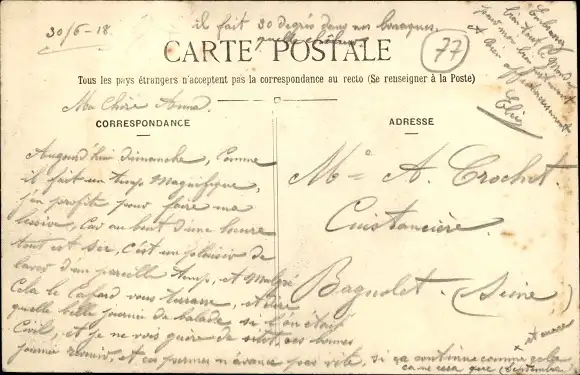 30/6-18.
il fait 30 degrés dans nos baraques,
quelle chaleur
CARTE POSTALE
77
Embrasse
bien tout le monde
pour moi bien
et bien affectueusement
Elie
Tous les pays étrangers n'acceptent pas la correspondance au recto (Se renseigner à la Poste)
Ma Chère Anna.
CORRESPONDANCE
ADRESSE
Aujourd'hui Dimanche, comme
il fait un temps Magnifique,
j'en profite pour faire ma
lessive, Car au bout d'une heure
tout est sec, C'est un plaisir de
laver d'un pareille temp, et Malgré
Cela le Cafard vous
quelle belle journée de balade, si l'on était
Civil, et je ne vois guère de sitôt, ces bonnes
journée revenir, et ces permes n'avance pas vite, si ça continue comme cela
ça ne sera que (Septembre)
et encore
Me A. Crochet.
Cuistancière.
Bagnolet. (Seine)